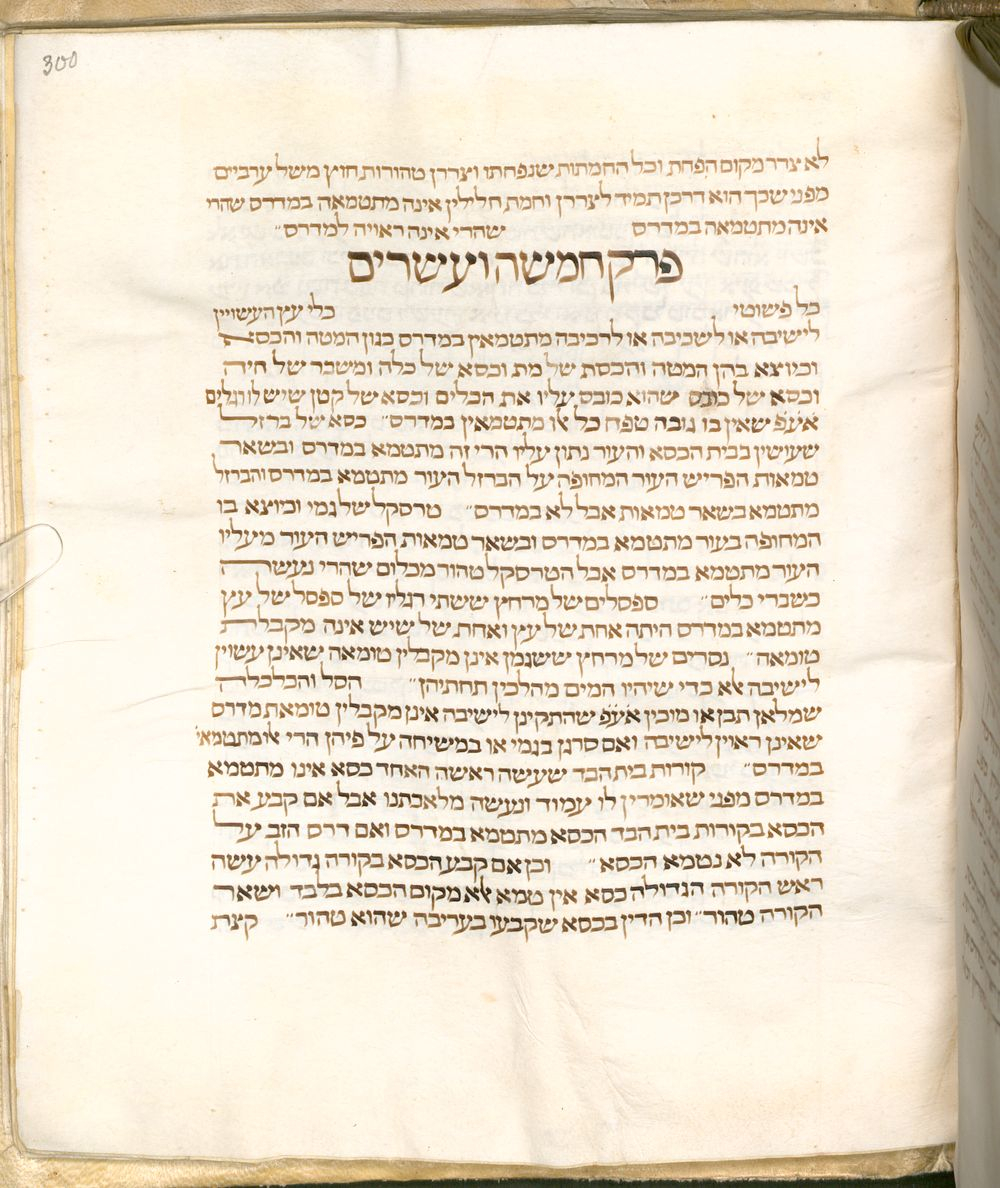 300
לא צדר מקום הפחת וכל החמתות שנפחתו וצררן טהורות חוץ משל ערביים
מפני שכך הוא דרכן תמיד לצררן וחמת חלילין אינה מתטמאה במדרס שהרי
אינה מתטמאה במדרס שהרי אינה ראויה למדרס״
פרק חמשה ועשרים
כל פשוטי כלי עץ העשויין
לישיבה או לשכיבה או לרכיבה מתטמאין במדרס כגון המטה והכסא
וכיוצא בהן המטה והכסת של מת וכסא של כלה ומשבר של חיה
וכסא של כובס שהוא כובס עליו את הכלים וכסא של קטן שיש לו רגלים
אע״פ שאין בו גובה טפח כל אלו מתטמאין במדרס״ כסא של ברזל
שעושין בבית הכסא והעור נתון עליו הרי זה מתטמא במדרס ובשאר
טמאות הפריש העור המחופה על הברזל העור מתטמא במדרס והברזל
מתטמא בשאר טמאות אבל לא במדרס״ טרסקל של גמי וכיוצא בו
המחופה בעור מתטמא במדרס ובשאר טמאות הפריש העור מעליו
העור מתטמא במדרס אבל הטרסקל טהור מכלום שהרי נעשה
כשברי כלים״ ספסלים של מרחץ ששתי רגליו של ספסל של עץ
מתטמא במדרס היתה אחת של עץ ואחת של שיש אינה מקבלת
טומאה״ נסרים של מרחץ ששגמן אינן מקבלין טומאה שאינן עשוין
לישיבה אלא כדי שיהיו המים מהלכין תחתיהן״ הסל והכלכלה
שמלאן תבן או מוכין אע״פ שהתקינן לישיבה אינן מקבלין טומאת מדרס
שאינן ראוין לישיבה ואם סרגן בגמי או במשיחה על פיהן הרי אלו מתטמאי׳
במדרס״ קורות בית הבד שעשה ראשה האחד כסא אינו מתטמא
במדרס מפני שאומרין לו עמוד ונעשה מלאכתנו אבל אם קבע את
הכסא בקורות בית הבד הכסא מתטמא במדרס ואם דרס הזב על
הקורה לא נטמא הכסא״ וכן אם קבע הכסא בקורה גדולה עשה
ראש הקורה הגדולה כסא אין טמא אלא מקום הכסא בלבד ושאר
הקורה טהור״ וכן הדין בכסא שקבעו בעריבה שהוא טהור״ קצת